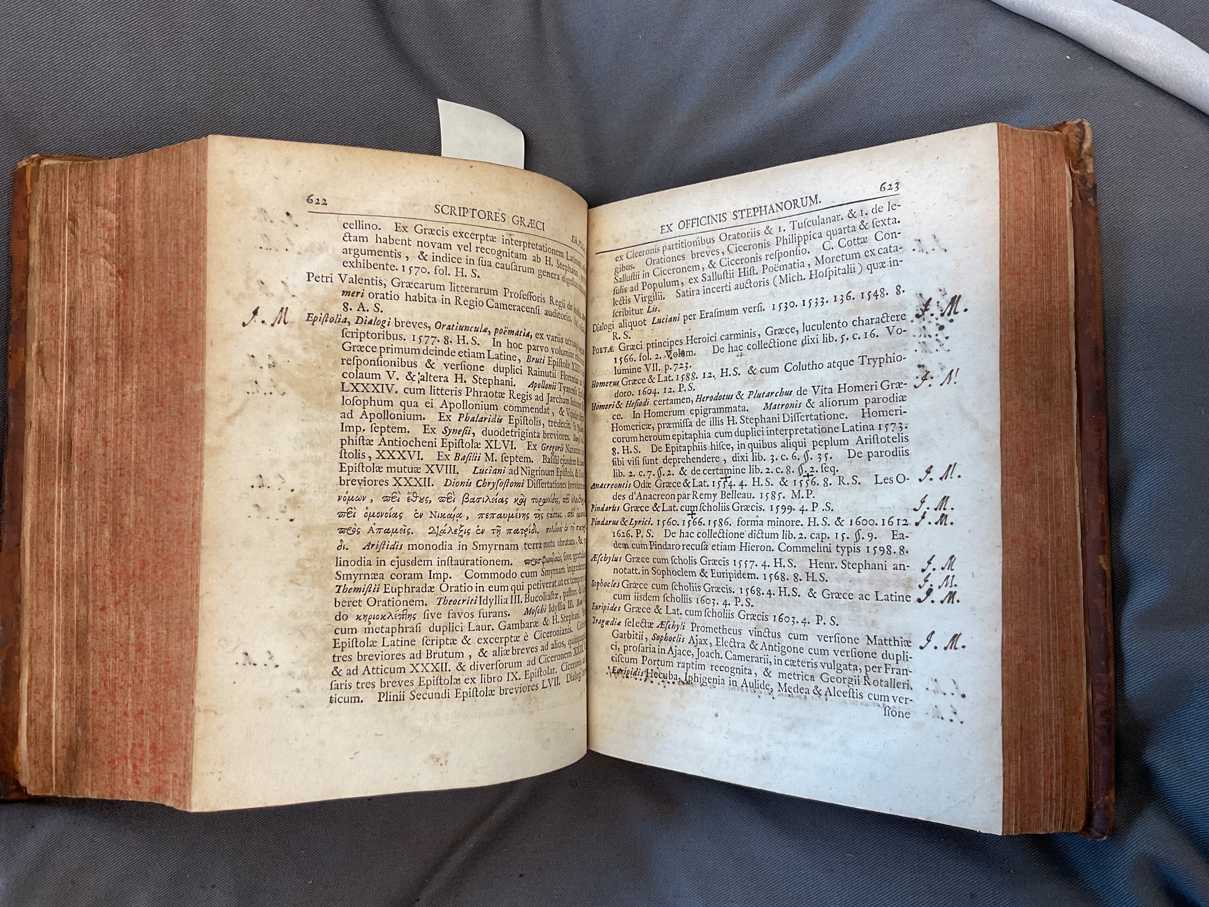 622
SCRIPTORES GRÆCI
cellino. Ex Græcis excerptæ interpretationem Latinam
ctam habent novam vel recognitam ab H. Stephano,
argumentis, & indice in sua causarum genera
exhibente. 1570. fol. H. S.
Petri Valentis, Græcarum litterarum Professoris Regii de
meri oratio habita in Regio Cameracensi auditorio.
8. A. S.
J. M
Epistolia, Dialogi breves, Oratiunculæ, poëmatia, ex variis
scriptoribus. 1577. 8. H. S. In hoc parvo volumine
Græce primum deinde etiam Latine, Bruti Epistolæ
responsionibus & versione duplici Rainutii Florentini
colaum V. & altera H. Stephani. Apollonii Tyanei
LXXXIV. cum litteris Phraotæ Regis ad Jarcham
losophum qua ei Apollonium commendat, &
ad Apollonium. Ex Phalaridis Epistolis, tredecim.
Imp. septem. Ex Synesii, duodetriginta breviores.
phistæ Antiocheni Epistolæ XLVI. Ex Gregorii
stolis, XXXVI. Ex Basilii M. septem.
Epistolæ mutuæ XVIII. Luciani ad Nigrinum Epistola, &
breviores XXXII. Dionis Chrysostomi Dissertationes
νόμων, περὶ ἔθους, περὶ βασιλείας καὶ τυραννίδος,
περὶ ὁμονοίας ἐν Νικαίᾳ, πεπαυμένης τῆς στάσεως,
πρὸς Απαμεῖς. Διάλεξις ἐν τῇ πατρίδι.
Aristidis monodia in Smyrnam terra motu
linodia in ejusdem instaurationem.
Smyrnæa coram Imp. Commodo cum Smyrnam
Themistii Euphradæ Oratio in eum qui petiverat ut ex
beret Orationem. Theocriti Idyllia III. Bucoliastæ,
do κηριοκλέπτης sive favos furans. Moschi Idyllia
cum metaphrasi duplici Laur. Gambaræ & H. Stephani
Epistolæ Latine scriptæ & excerptæ è Ciceronianis.
tres breviores ad Brutum, & aliæ breves ad alios,
& ad Atticum XXXII. & diversorum ad Ciceronem
saris tres breves Epistolæ ex libro IX. Epistolar.
ticum. Plinii Secundi Epistolæ breviores LVII. Dialogi
EX OFFICINIS STEPHANORUM.
623
ex Ciceronis partitionibus Oratoriis & 1. Tusculanar. & 1. de le-
gibus. Orationes breves, Ciceronis Philippica quarta & sexta.
Sallustii in Ciceronem, & Ciceronis responsio. C. Cottæ Con-
sulis ad Populum, ex Sallustii Hist. Poëmatia, Moretum ex cata-
lectis Virgilii. Satira incerti auctoris (Mich. Hospitalii) quæ in-
scribitur Lis.
Dialogi aliquot Luciani per Erasmum versi. 1530. 1533. 136. 1548. 8.
R. S.
POETÆ Græci principes Heroici carminis, Græce, luculento charactere
J. M.
1566. fol. 2. Volum. De hac collectione dixi lib. 5. c. 16. Vo-
lumine VII. p. 723.
Homerus Græce & Lat. 1588. 12. H. S. & cum Colutho atque Tryphio-
doro. 1604. 12. P. S.
Homeri & Hesiodi certamen, Herodotus & Plutarchus de Vita Homeri Græ-
J. M
ce. In Homerum epigrammata. Matronis & aliorum parodiæ
Homericæ, præmissa de illis H. Stephani Dissertatione. Homeri-
corum heroum epitaphia cum duplici interpretatione Latina 1573.
8. H. S. De Epitaphiis hisce, in quibus aliqui peplum Aristotelis
sibi visi sunt deprehendere, dixi lib. 3. c. 6. §. 35. De parodiis
lib. 2. c. 7. §. 2. & de certamine lib. 2. c. 8. §. 2. seq.
Anacreontis Odæ Græce & Lat. 1554. 4. H. S. & 1556. 8. R. S. Les O-
J. M.
des d'Anacreon par Remy Belleau. 1585. M. P.
Pindarus Græce & Lat. cum scholiis Græcis. 1599. 4. P. S.
J. M.
Pindarus & Lyrici. 1560. 1566. 1586. forma minore. H. S. & 1600. 1612
J. M.
1626. P. S. De hac collectione dictum lib. 2. cap. 15. §. 9. Ea-
dem cum Pindaro recusa etiam Hieron. Commelini typis 1598. 8.
Æschylus Græce cum scholiis Græcis 1557. 4. H. S. Henr. Stephani an-
J. M
notatt. in Sophoclem & Euripidem. 1568. 8. H. S.
J. M.
Sophocles Græce cum scholiis Græcis. 1568. 4. H. S. & Græce ac Latine
J. M.
cum iisdem scholiis 1603. 4. P. S.
Euripides Græce & Lat. cum scholiis Græcis 1603. 4. P. S.
Tragædiæ selectæ Æschyli Prometheus vinctus cum versione Matthiæ
J. M.
Garbitii, Sophoclis Ajax, Electra & Antigone cum versione dupli-
ci, prosaria in Ajace, Joach. Camerarii, in cæteris vulgata, per Fran-
ciscum Portum raptim recognita, & metrica Georgii Rotalleri.
Euripidis Hecuba, Iphigenia in Aulide, Medea & Alcestis cum ver-
sione